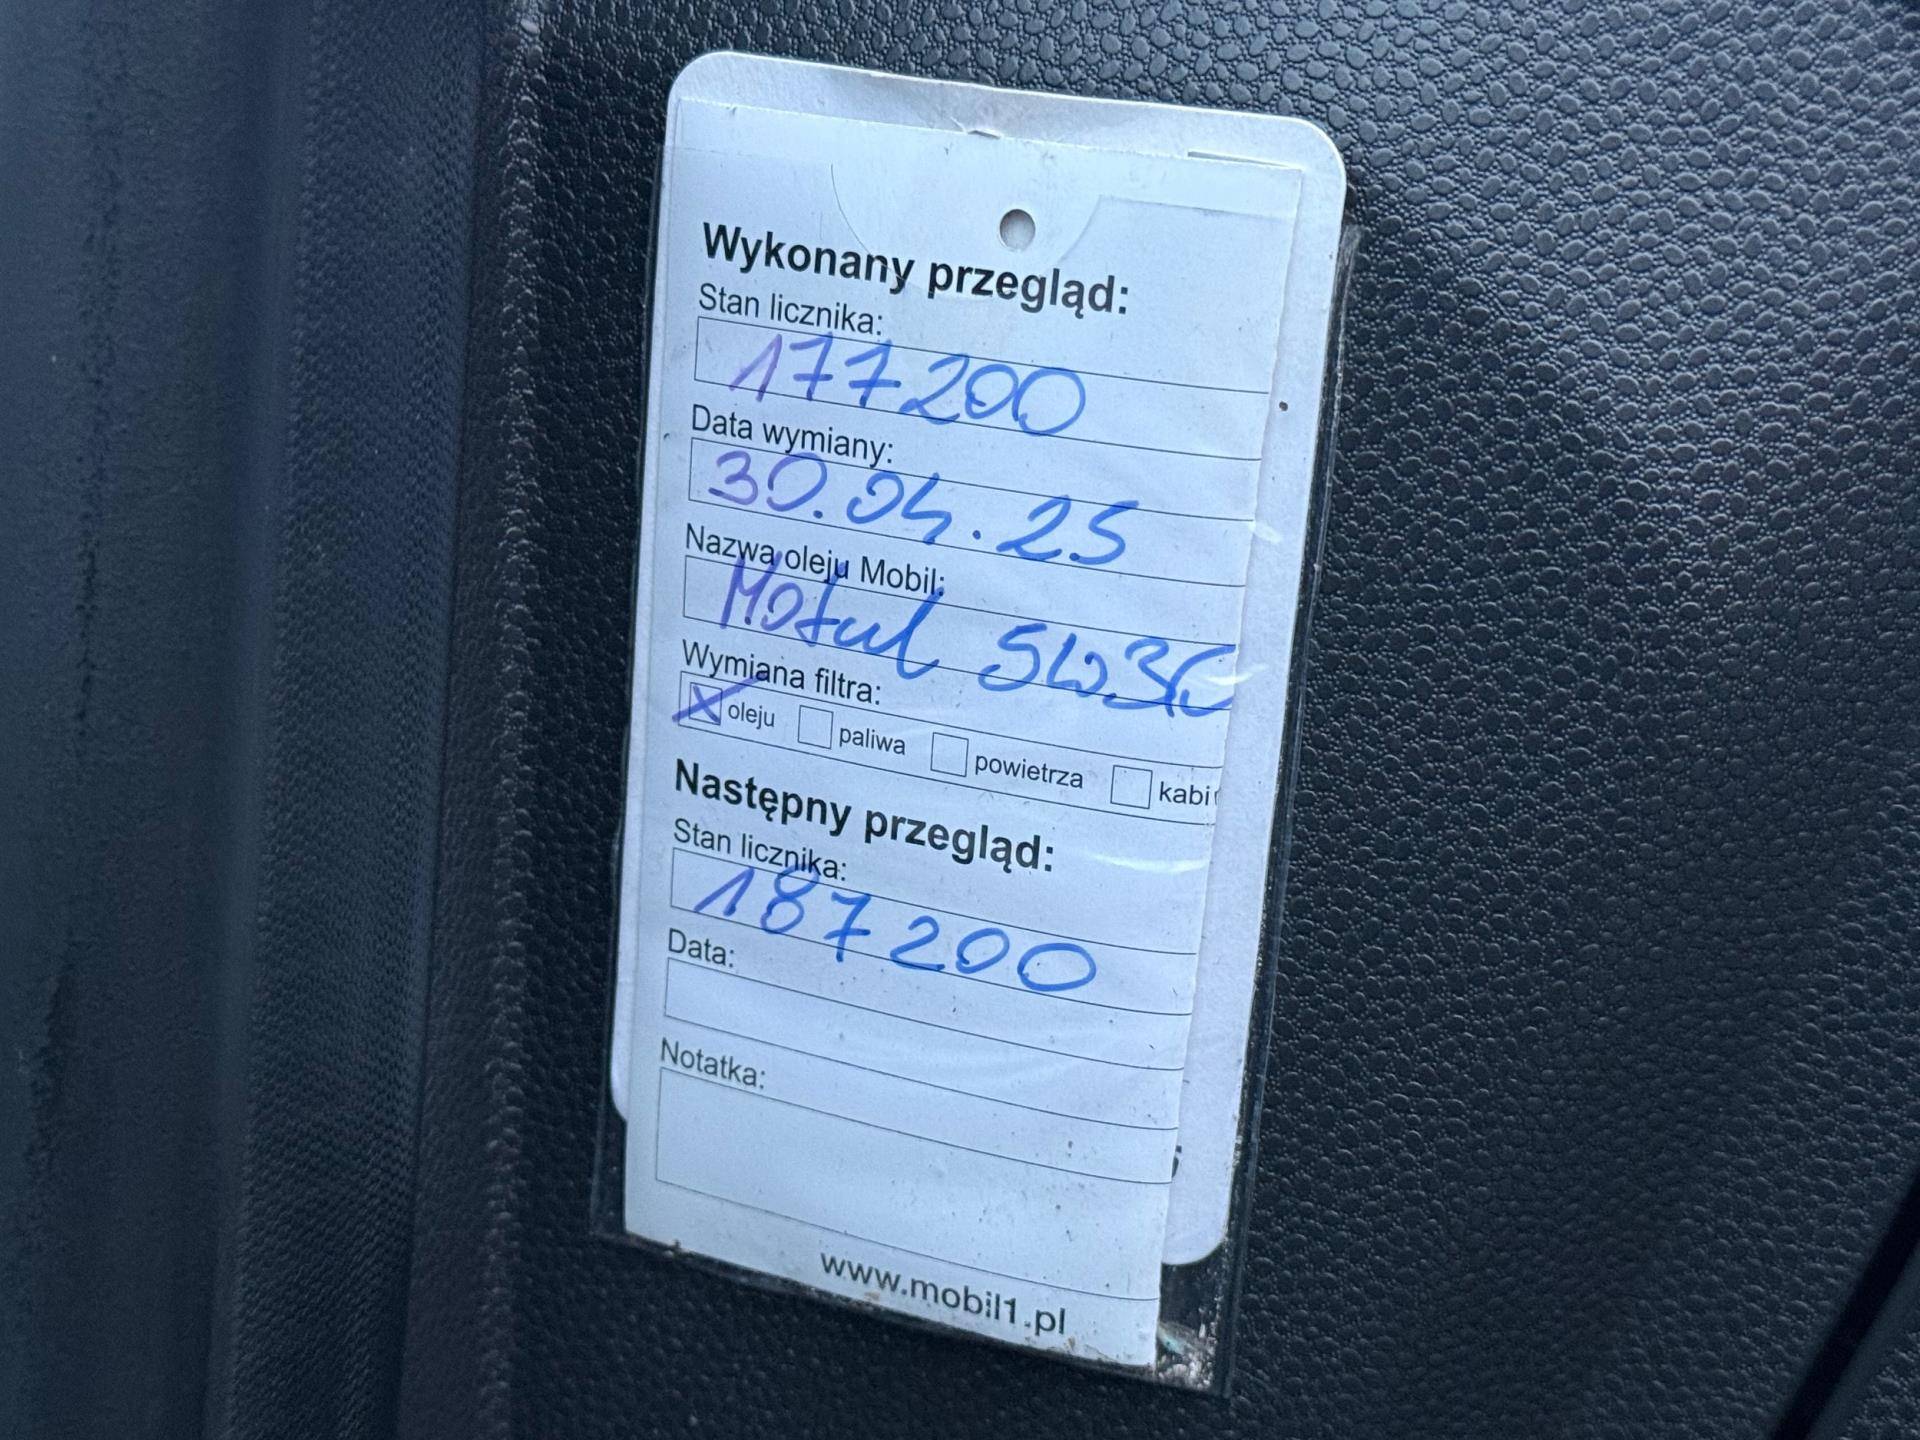 Wykonany przegląd:
Stan licznika:
177200
Data wymiany:
30.04.25
Nazwa oleju Mobil:
Motul 5W30
Wymiana filtra:
X oleju paliwa powietrza kabi
Następny przegląd:
Stan licznika:
187200
Data:
Notatka:
www.mobil1.pl